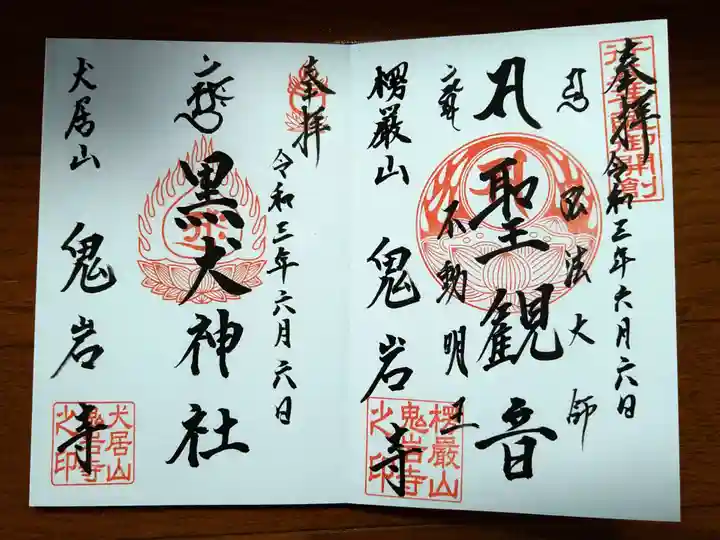 奉拝
令和三年六月六日
行基菩薩御開創
弘法大師
聖観音
不動明王
楞厳山
鬼岩寺
楞嚴山
鬼岩寺
之印
奉拝
令和三年六月六日
黒犬神社
犬居山
鬼岩寺
犬居山
鬼岩寺
之印